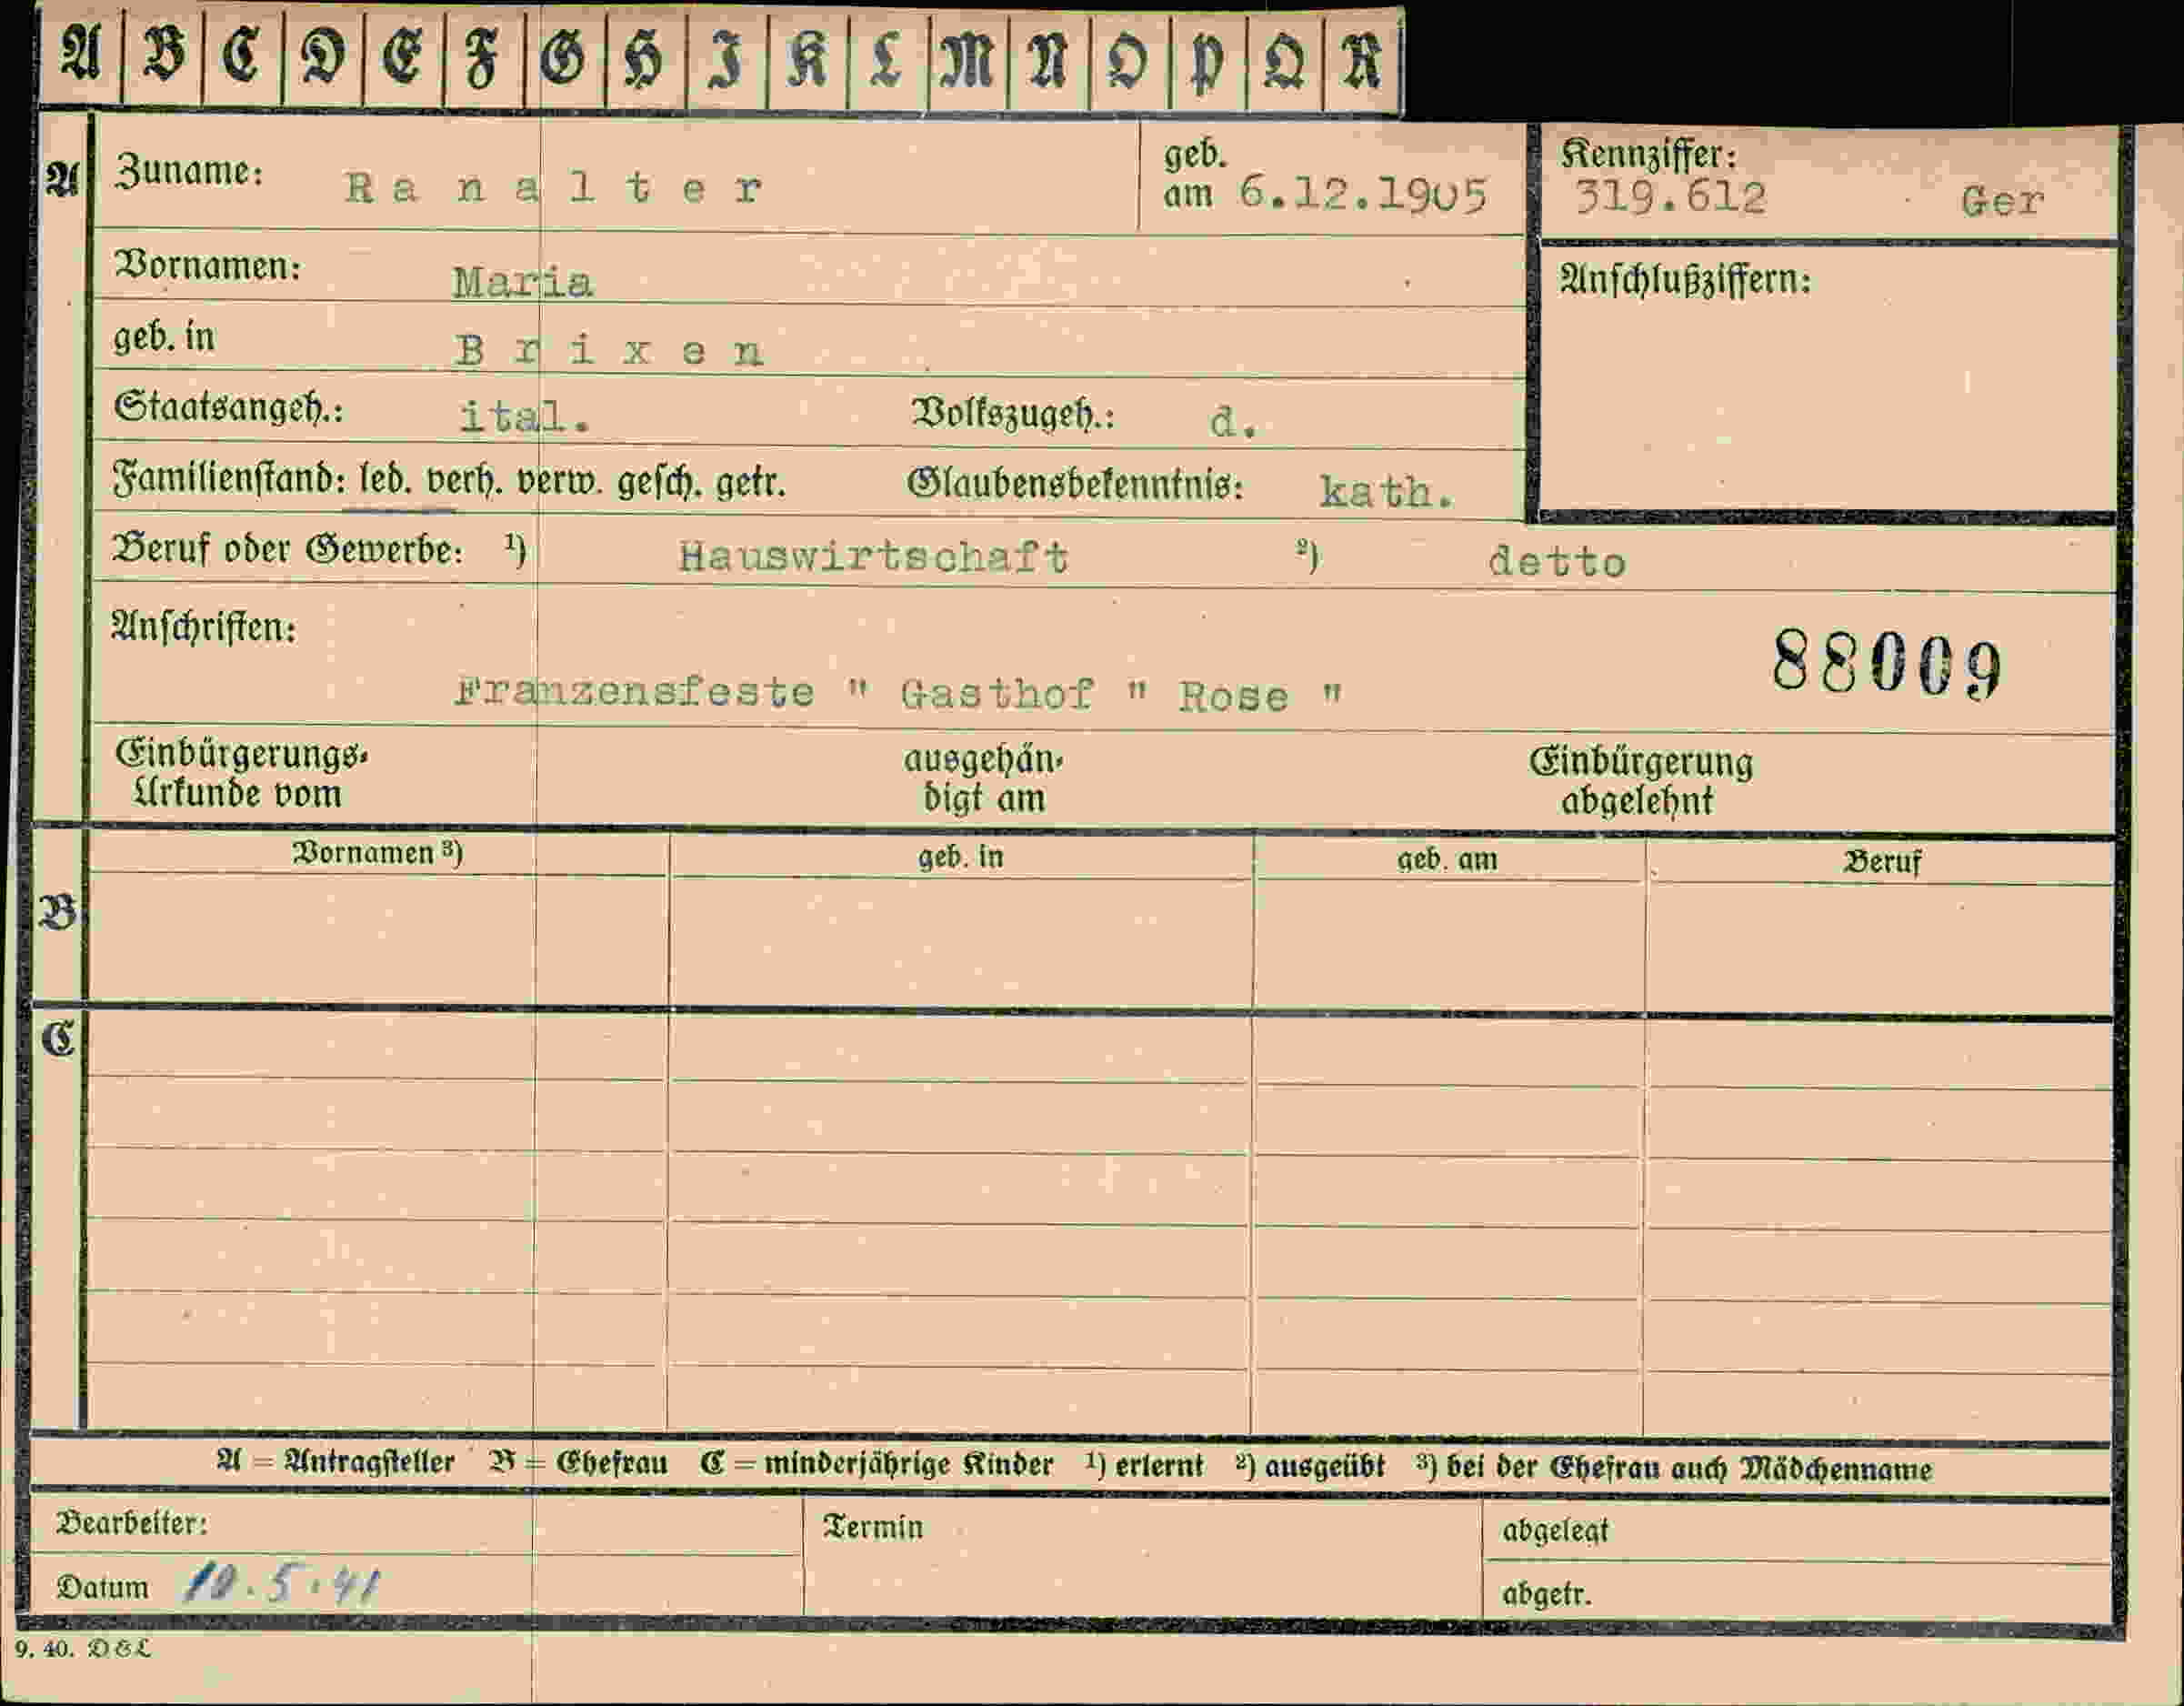 A B C D E F G H I K L M N O P Q R
A Zuname: Ranalter geb. am 6.12.1905 Kennziffer: 319.612 Ger
Vornamen: Maria Anschlußziffern:
geb. in Brixen
Staatsangeh.: ital. Volkszugeh.: d.
Familienstand: led. verh. verw. gesch. getr. Glaubensbekenntnis: kath.
Beruf oder Gewerbe: 1) Hauswirtschaft 2) detto
Anschriften:
88009
Franzensfeste " Gasthof " Rose "
Einbürgerungs- ausgehän- Einbürgerung
Urkunde vom digt am abgelehnt
Vornamen 3) geb. in geb. am Beruf
B
C
A = Antragsteller B = Ehefrau C = minderjährige Kinder 1) erlernt 2) ausgeübt 3) bei der Ehefrau auch Mädchenname
Bearbeiter: Termin abgelegt
Datum 10.5.41 abgetr.
9. 40. D&L